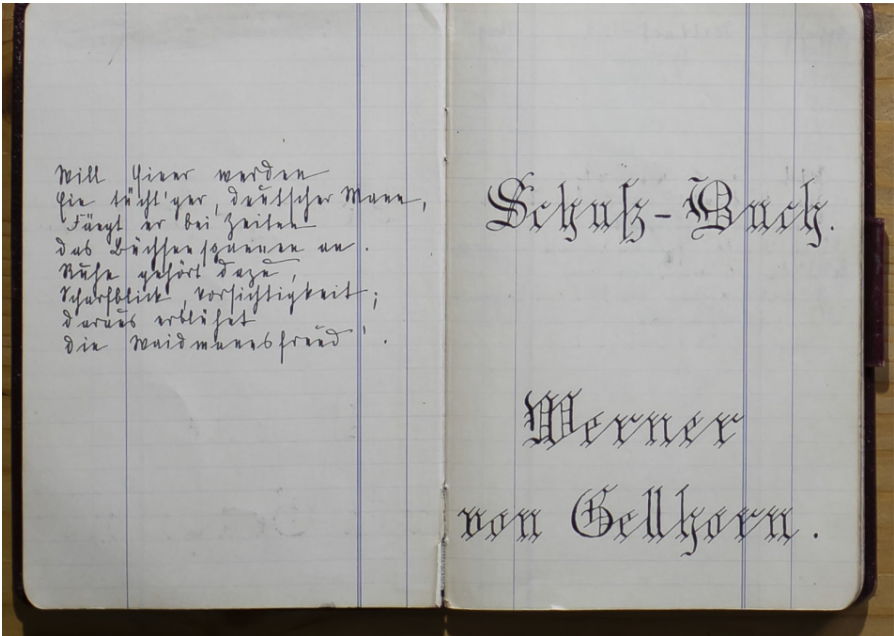 Will Einer werden
Ein tücht'ger, deutscher Mann,
Fängt er bei Zeiten
das Büchsenspannen an.
Ruhe gehört dazu,
Scharfblick, Vorsichtigkeit;
daraus erblühet
die Waidmannsfreud'.
Schuß-Buch.
Werner
von Gellhorn.